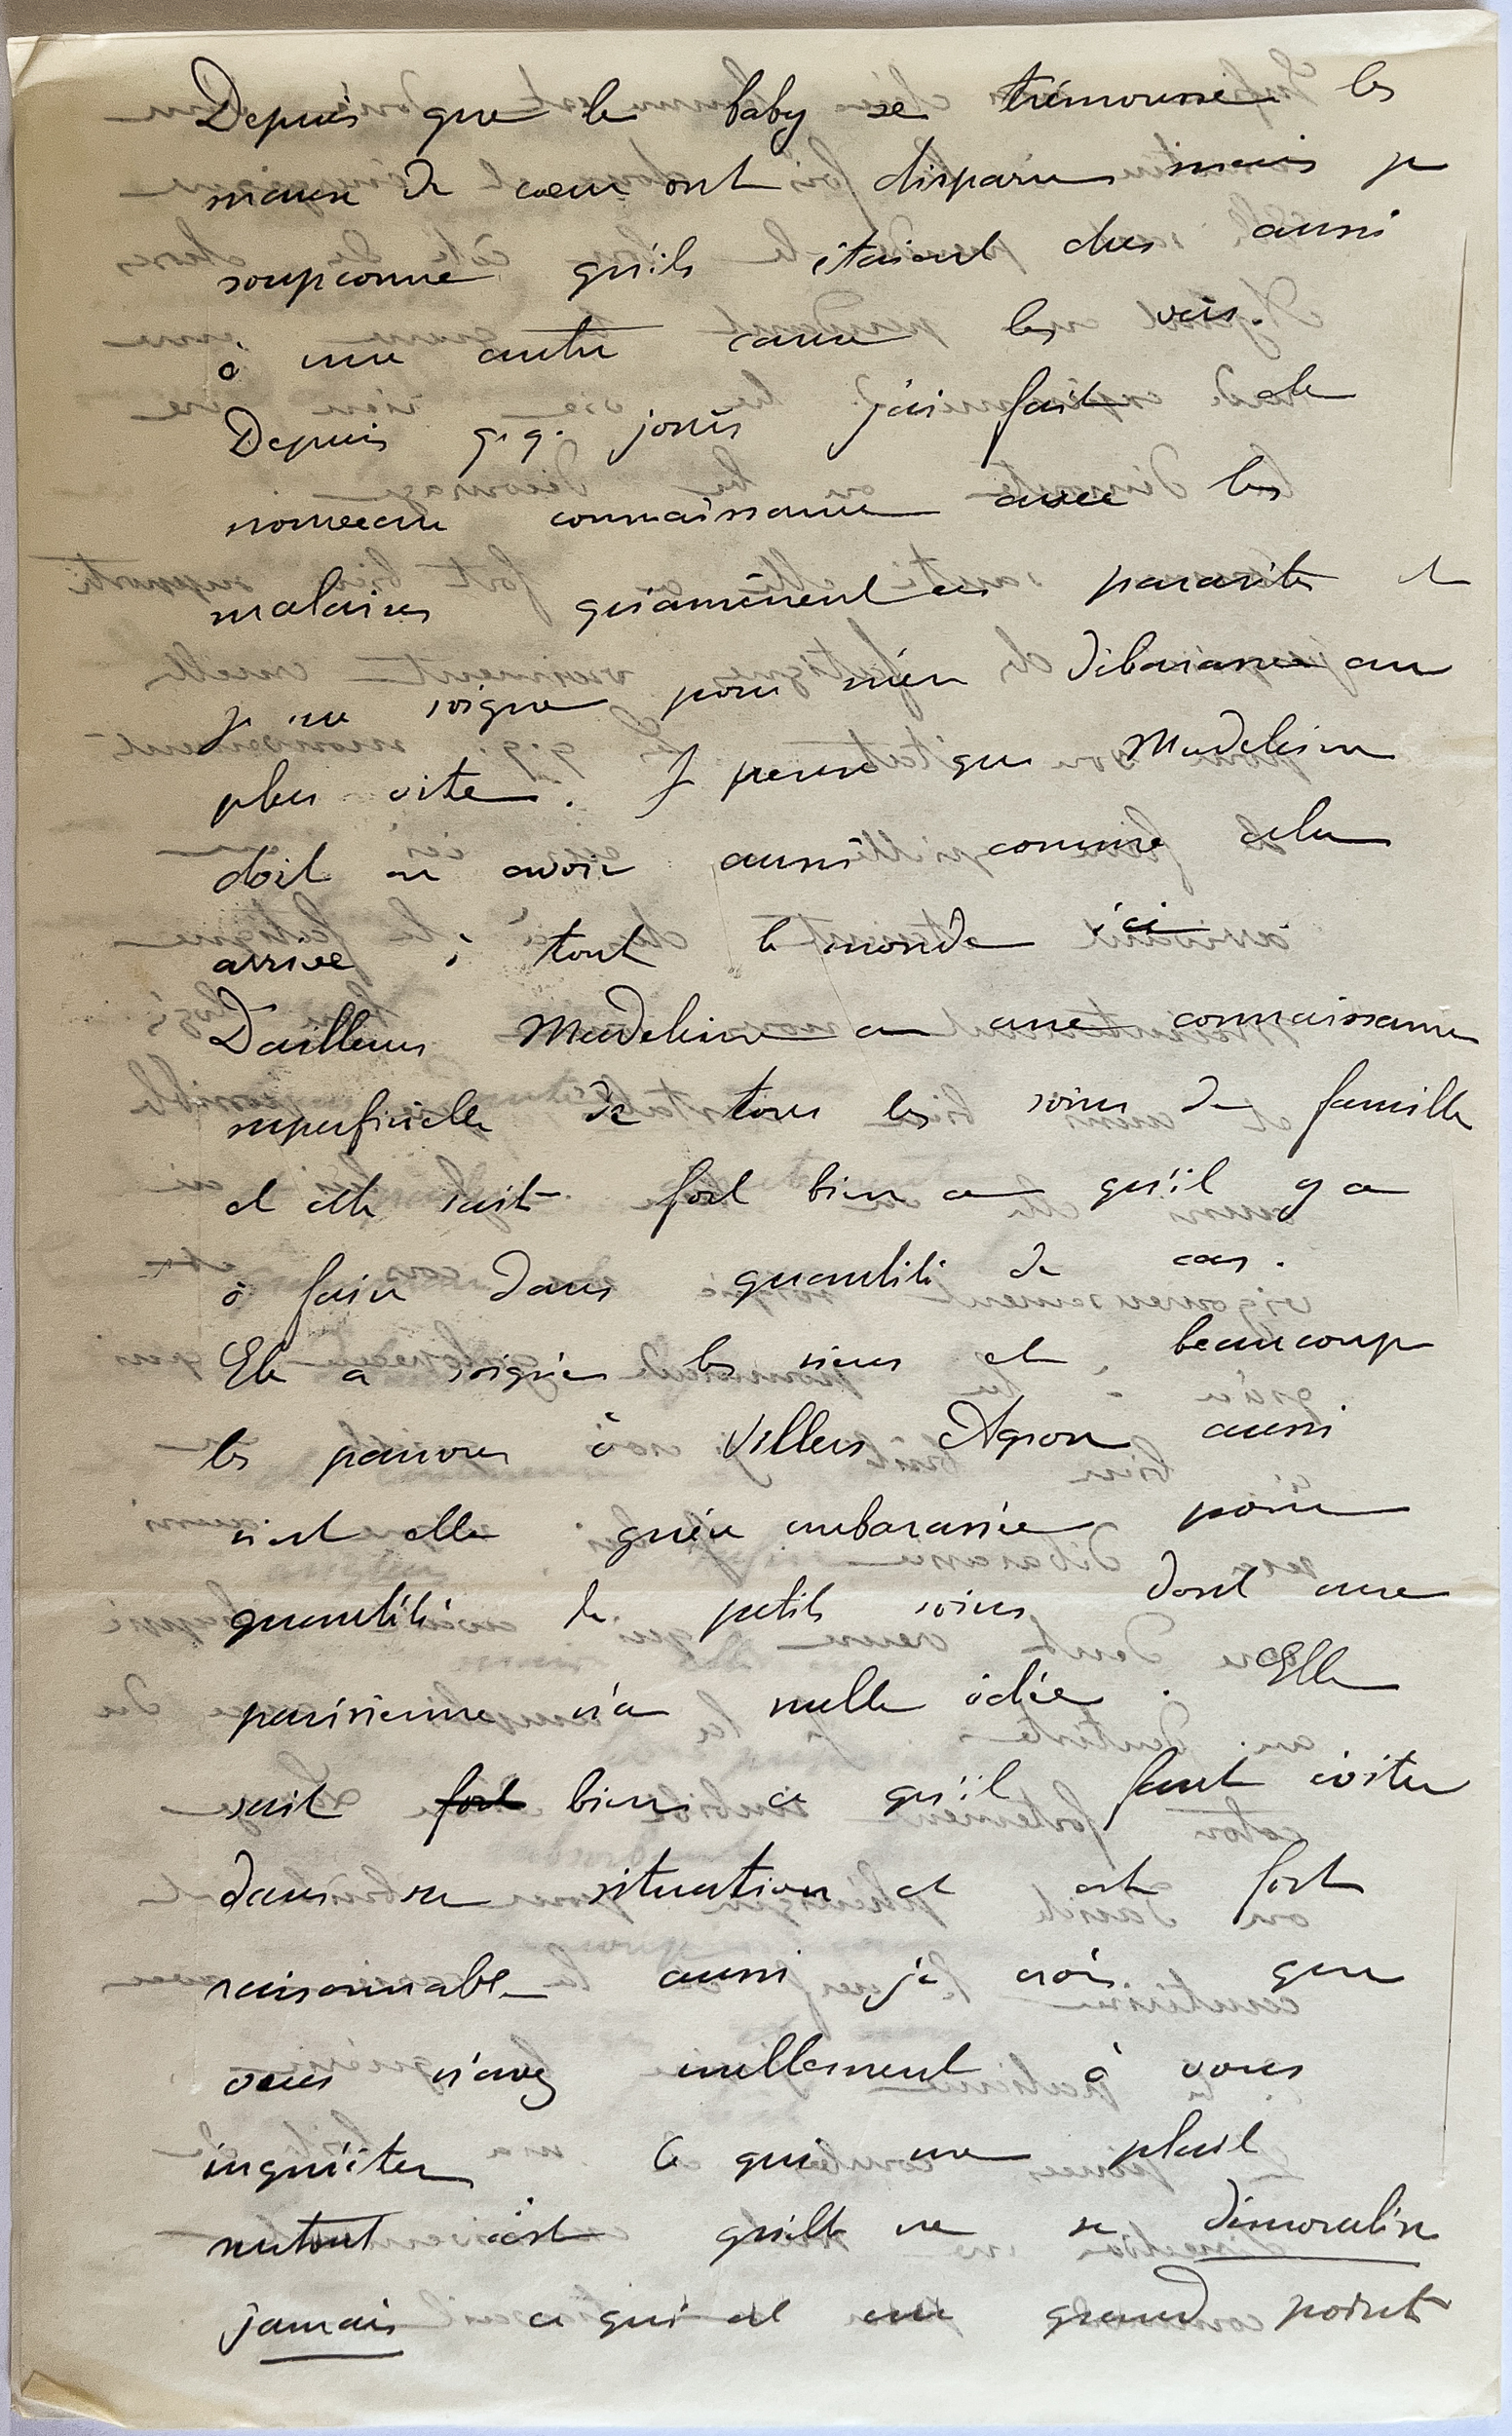 Depuis que le baby se trémousse les
maux de cœur ont disparu mais je
soupçonne qu'ils étaient dus aussi
à une autre cause les vers.
Depuis q.q. jours j'ai fait de
nouveau connaissance avec les
malaises qu'amènent ces parasites et
je me soigne pour m'en débarasser au
plus vite. Je pense que Madeleine
doit en avoir aussi comme cela
arrive à tout le monde ici
D'ailleurs Madeleine a une connaissance
superficielle de tous les soins de famille
et elle sait fort bien ce qu'il y a
à faire dans quantité de cas.
Elle a soigné les siens et beaucoup
les pauvres à Villers Agron aussi
n'est elle guère embarassée pour
quantité de petits soins dont une
parisienne n'a nulle idée. Elle
sait fort bien ce qu'il faut éviter
dans sa situation et est fort
raisonnable aussi je crois que
vous n'avez nullement à vous
inquiéter Ce qui me plait
surtout c'est qu'elle ne se démoralise
jamais ce qui est un grand point